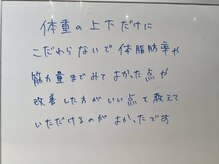 体重の上下だけに
こだわらないで体脂肪率や
筋力量までみてよかった点や
改善した方がいい点を教えて
いただけるのがよかったです